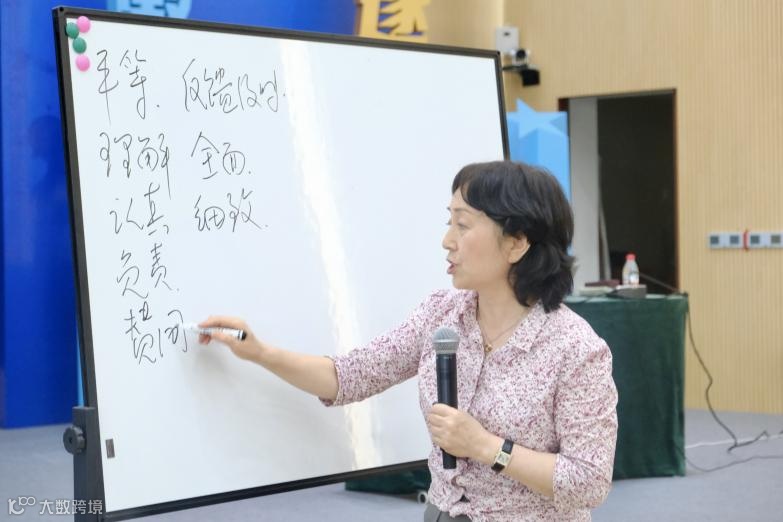 平等. 反馈及时.
理解 全面.
认真 细致.
负责.
赞同
大数跨境